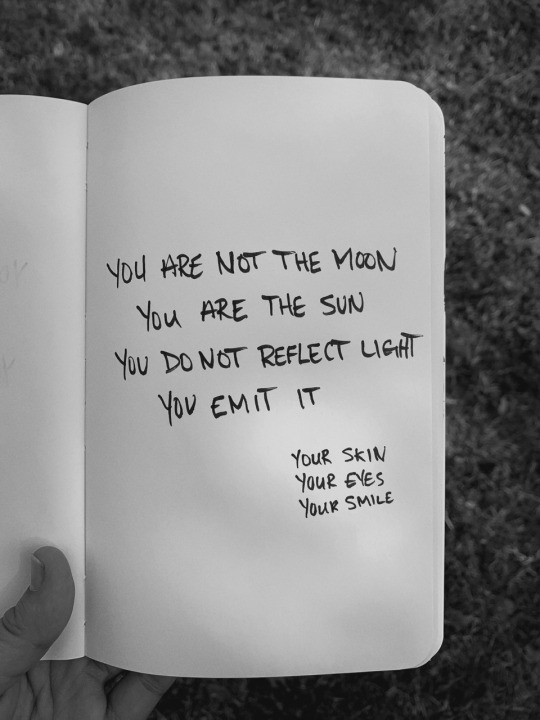 YOU ARE NOT THE MOON
YOU ARE THE SUN
YOU DO NOT REFLECT LIGHT
YOU EMIT IT
YOUR SKIN
YOUR EYES
YOUR SMILE